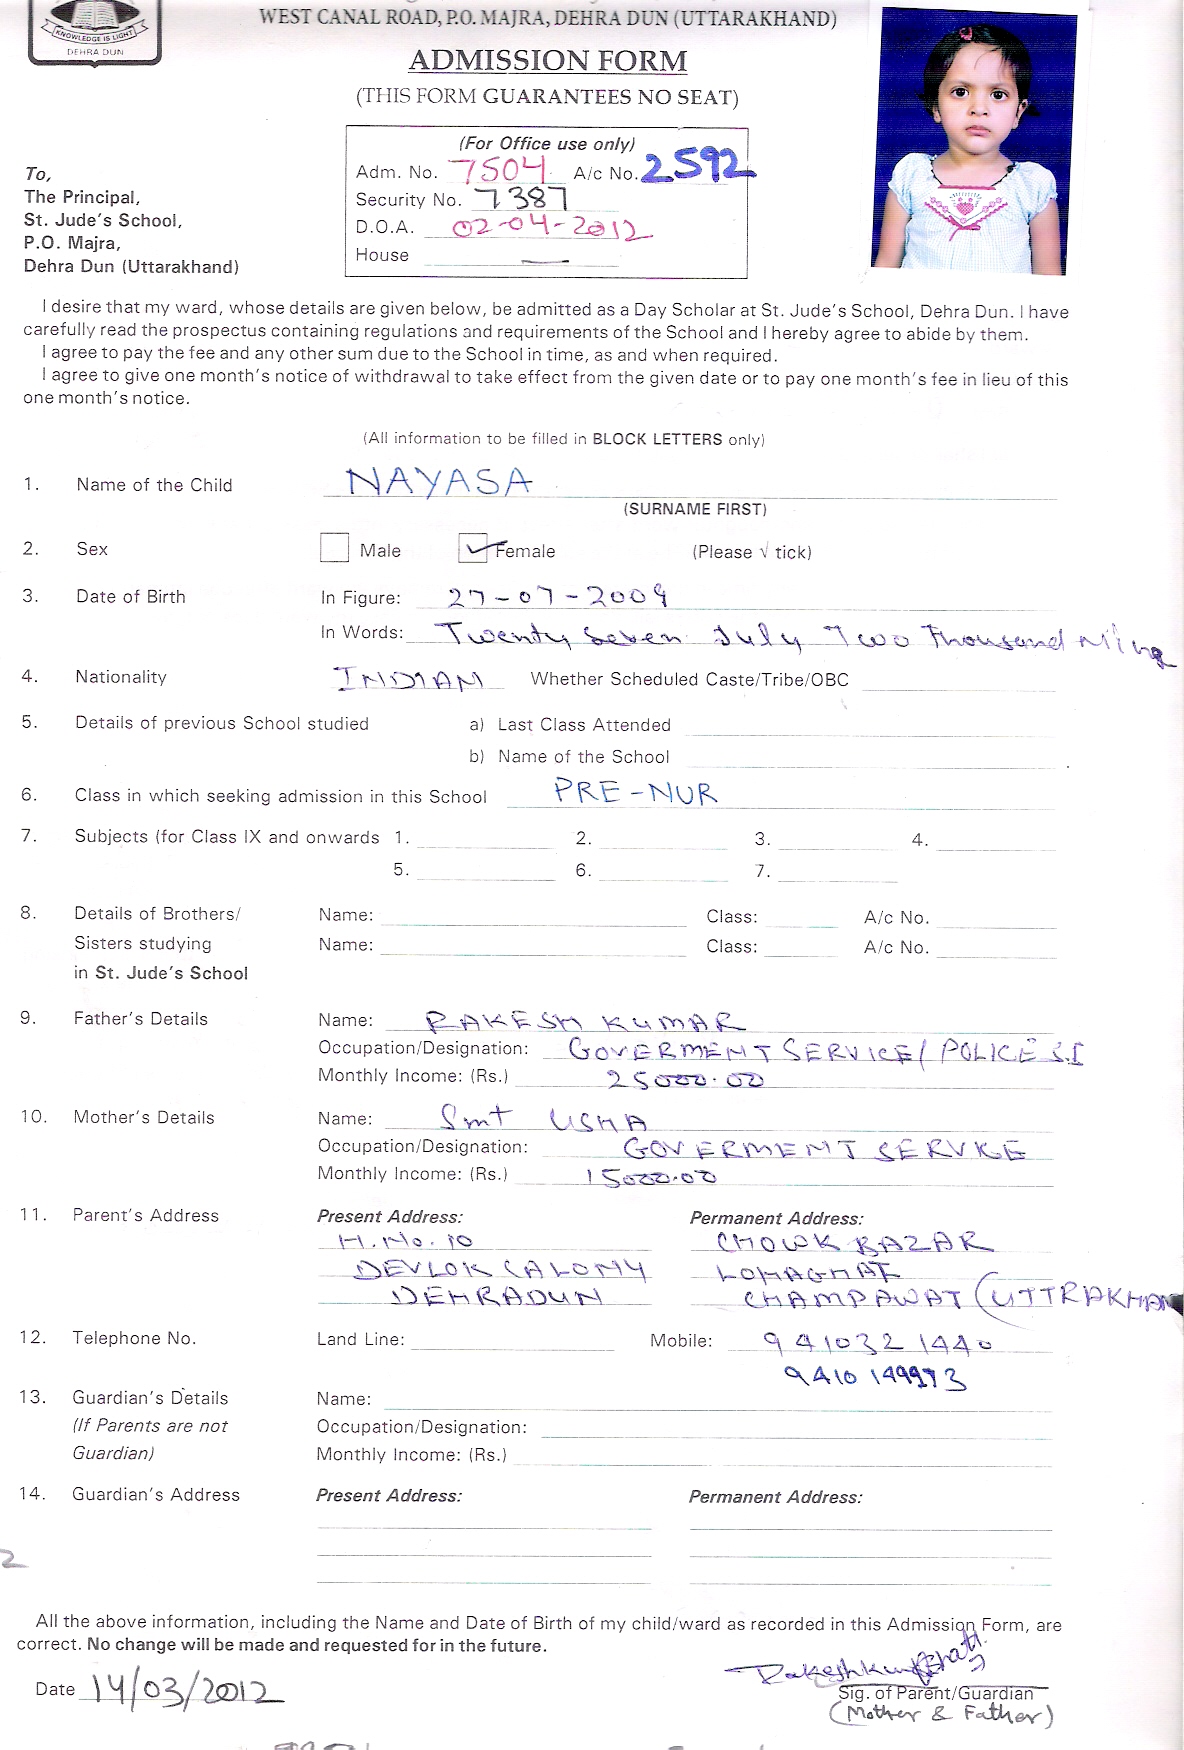 KNOWLEDGE IS LIGHT
DEHRA DUN
WEST CANAL ROAD, P.O. MAJRA, DEHRA DUN (UTTARAKHAND)
ADMISSION FORM
(THIS FORM GUARANTEES NO SEAT)
(For Office use only)
Adm. No. 7504 A/c No. 2592
Security No. 7387
D.O.A. 02-04-2012
House —
To,
The Principal,
St. Jude's School,
P.O. Majra,
Dehra Dun (Uttarakhand)
I desire that my ward, whose details are given below, be admitted as a Day Scholar at St. Jude's School, Dehra Dun. I have
carefully read the prospectus containing regulations and requirements of the School and I hereby agree to abide by them.
I agree to pay the fee and any other sum due to the School in time, as and when required.
I agree to give one month's notice of withdrawal to take effect from the given date or to pay one month's fee in lieu of this
one month's notice.
(All information to be filled in BLOCK LETTERS only)
1. Name of the Child NAYASA
(SURNAME FIRST)
2. Sex Male ✓ Female (Please √ tick)
3. Date of Birth In Figure: 27-07-2009
In Words: Twenty Seven July Two Thousand Nine
4. Nationality INDIAN Whether Scheduled Caste/Tribe/OBC
5. Details of previous School studied a) Last Class Attended
b) Name of the School
6. Class in which seeking admission in this School PRE-NUR
7. Subjects (for Class IX and onwards 1. 2. 3. 4.
5. 6. 7.
8. Details of Brothers/ Name: Class: A/c No.
Sisters studying Name: Class: A/c No.
in St. Jude's School
9. Father's Details Name: RAKESH KUMAR
Occupation/Designation: GOVERMENT SERVICE/ POLICE S.I
Monthly Income: (Rs.) 25000.00
10. Mother's Details Name: Smt USHA
Occupation/Designation: GOVERMENT SERVICE
Monthly Income: (Rs.) 15000.00
11. Parent's Address Present Address: Permanent Address:
H.No. 10 CHOWK BAZAR
DEVLOK CALONY LOHAGHAT
DEHRADUN CHAMPAWAT (UTTRAKHAN
12. Telephone No. Land Line: Mobile: 9410321440
9410149973
13. Guardian's Details Name:
(If Parents are not Occupation/Designation:
Guardian) Monthly Income: (Rs.)
14. Guardian's Address Present Address: Permanent Address:
2
All the above information, including the Name and Date of Birth of my child/ward as recorded in this Admission Form, are
correct. No change will be made and requested for in the future.
Date 14/03/2012
Sig. of Parent/Guardian
(Mother & Father)